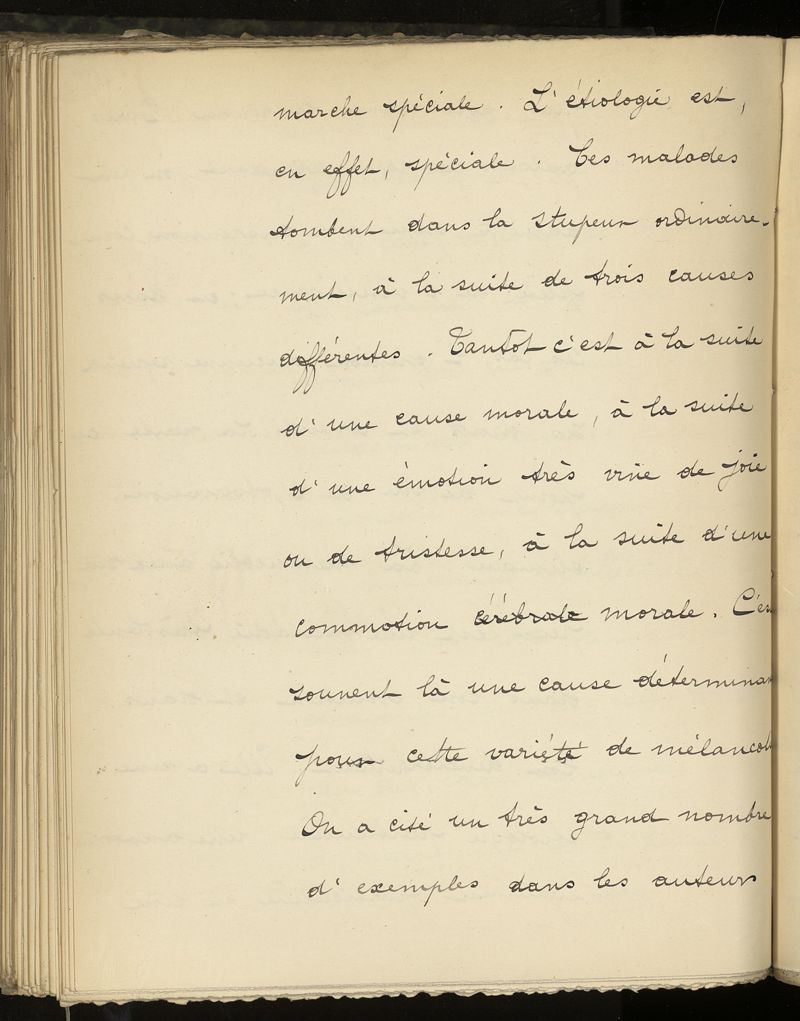 marche spéciale. L'étiologie est,
en effet, spéciale. Ces malades
tombent dans la stupeur ordinaire-
ment, à la suite de trois causes
différentes. Tantôt c'est à la suite
d'une cause morale, à la suite
d'une émotion très vive de joie
ou de tristesse, à la suite d'une
commotion cérébrale morale. C'es
souvent là une cause déterminan
pour cette variété de mélancol
On a cité un très grand nombre
d'exemples dans les auteurs